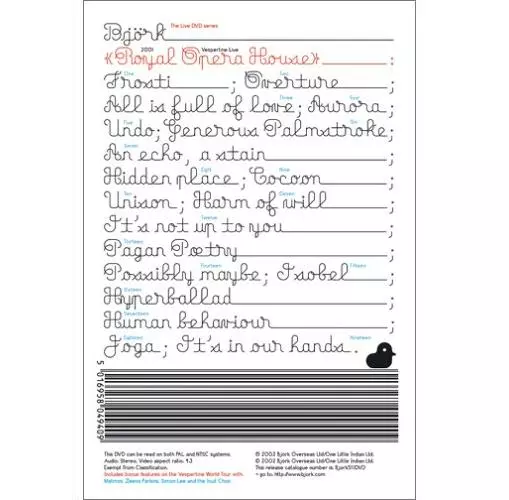 Björk The Live DVD series
2001 Vespertine Live
«Royal Opera House» ;
One Two
Frosti ; Overture ;
Three Four
All is full of love; Aurora ;
Five Six
Undo; Generous Palmstroke;
Seven
An echo, a stain ;
Eight Nine
Hidden place ; Cocoon ;
Ten Eleven
Unison ; Harm of will ;
Twelve
It's not up to you ;
Thirteen
Pagan Poetry ;
Fourteen Fifteen
Possibly maybe; Isobel ;
Sixteen
Hyperballad ;
Seventeen
Human behaviour ;
Eighteen Nineteen
Joga ; It's in our hands.
5 016958 049409
This DVD can be read on both PAL and NTSC systems.
Audio: Stereo. Video aspect ratio: 4:3
Exempt from Classification.
Includes bonus features on the Vespertine World Tour with
Matmos, Zeena Parkins, Simon Lee and the Inuit Choir.
© 2002 Björk Overseas Ltd/One Little Indian Ltd.
℗ 2002 Björk Overseas Ltd/One Little Indian Ltd.
This release catalogue number is:
~ go to: http://www.bjork.com